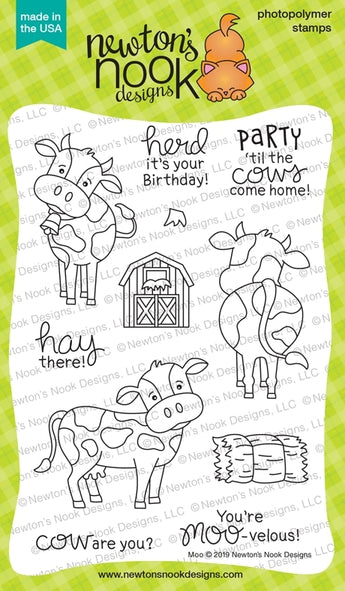 made in
the USA
newton's
nook
designs
photopolymer
stamps
herd
it's your
Birthday!
PaRTY
'til the
cows
come home!
hay
there!
cow are you?
You're
moo-velous!
Moo © 2019 Newton's Nook Designs
© Newton's Nook Designs, LLC
www.newtonsnookdesigns.com